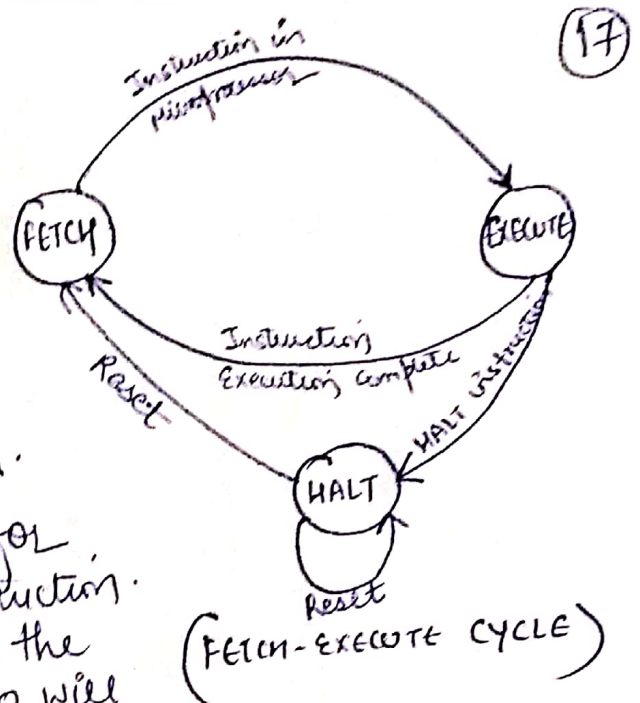 17
Instruction in
Microprocessor
FETCH
EXECUTE
Instruction
Execution complete
HALT instruction
Reset
HALT
Reset
(FETCH-EXECUTE CYCLE)
or
uction.
the
will